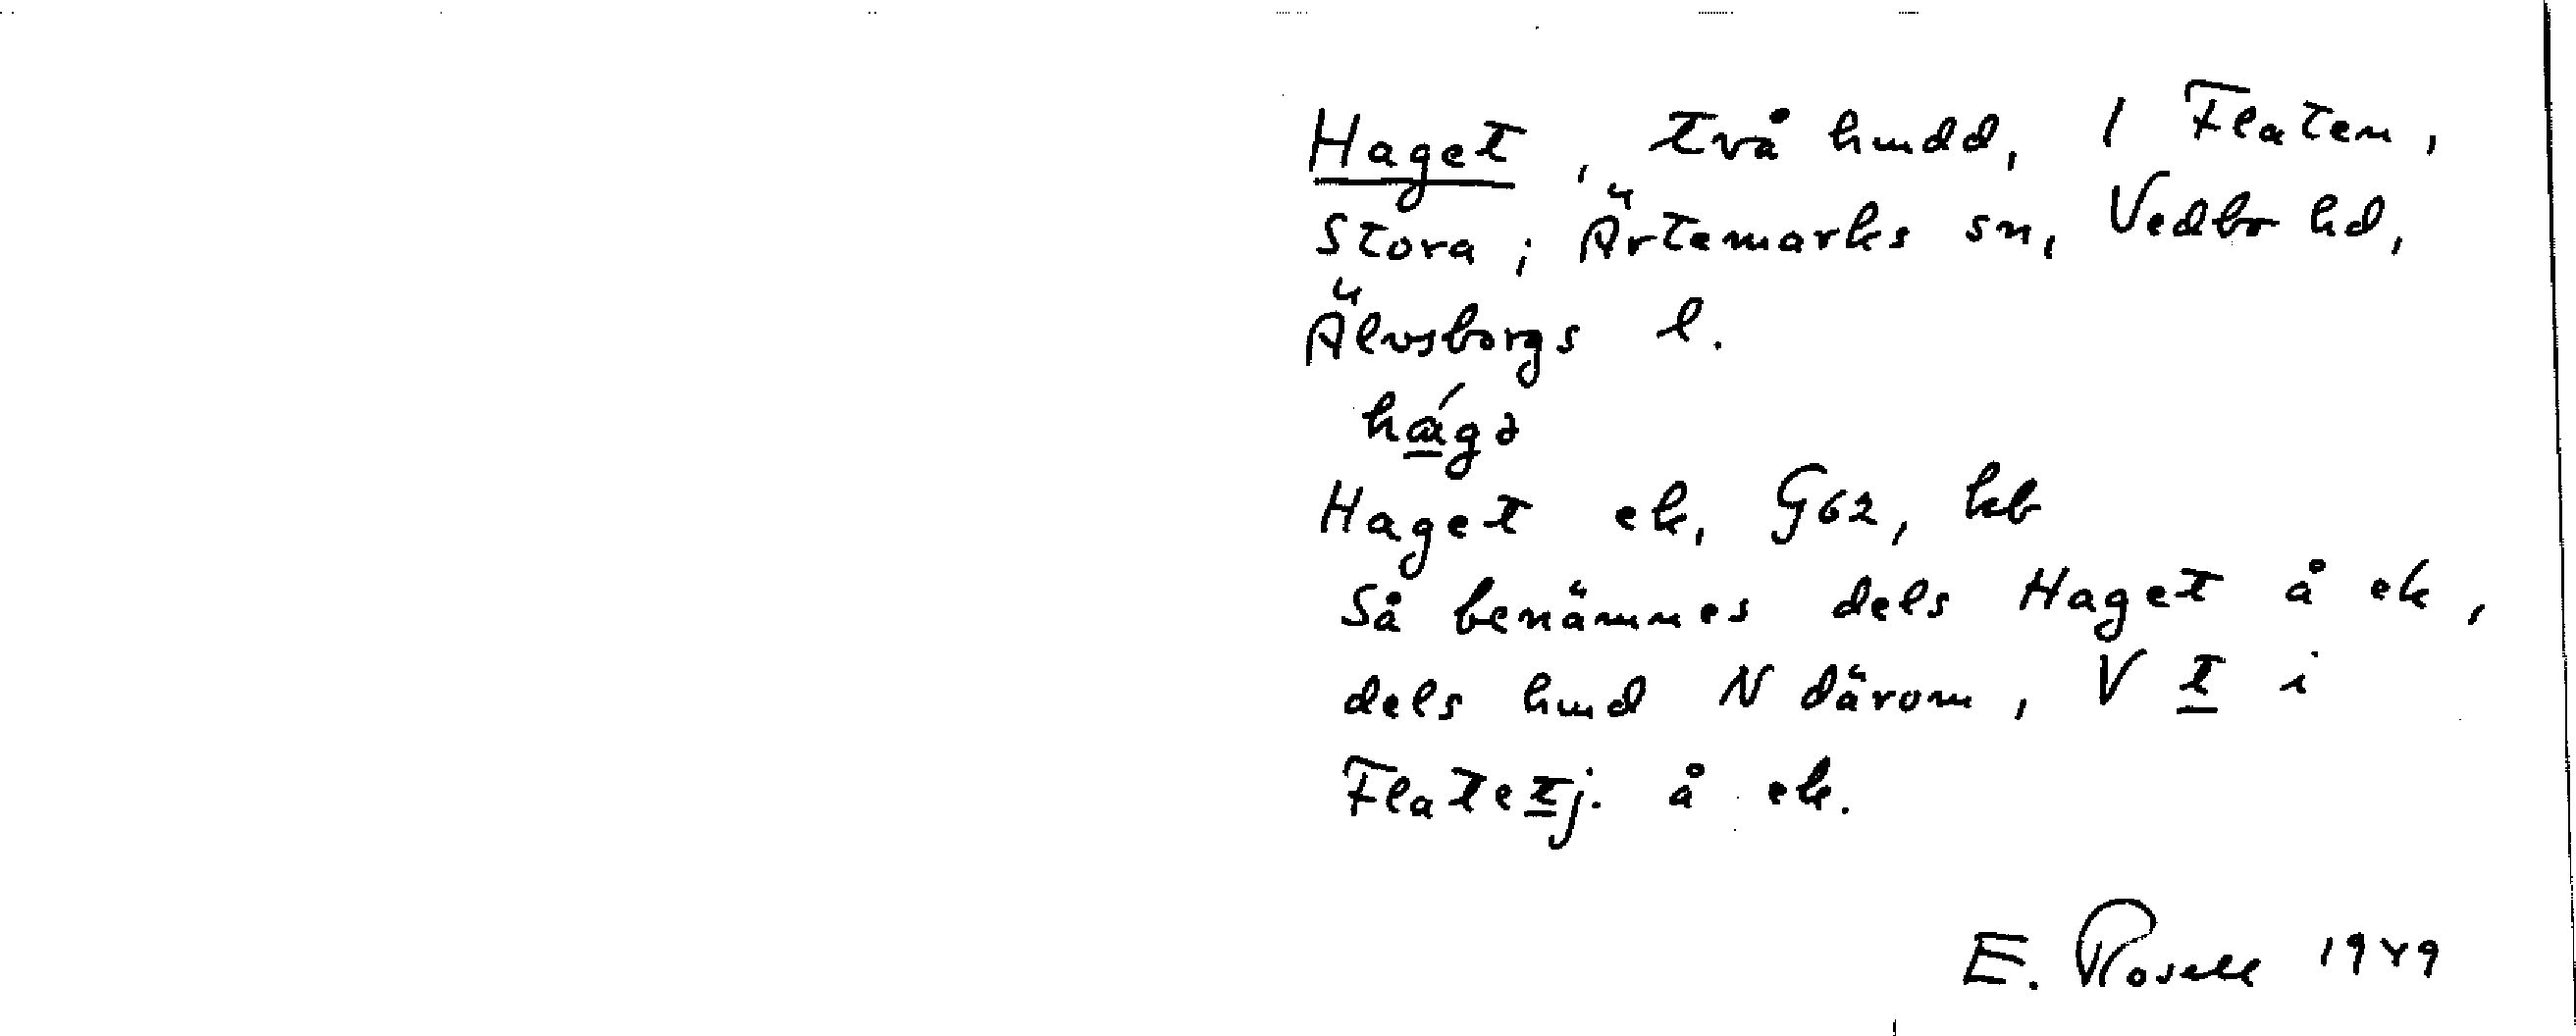 Haget, två hmdd, 1 Flaten,
Stora; Ärtemarks sn, Vedbo hd,
Älvsborgs l.
hágə
Haget ek, G62, kb
Så benämnes dels Haget å ek,
dels hmd N därom, V t i
Flatetj. å ek.
E. Rosell 1949